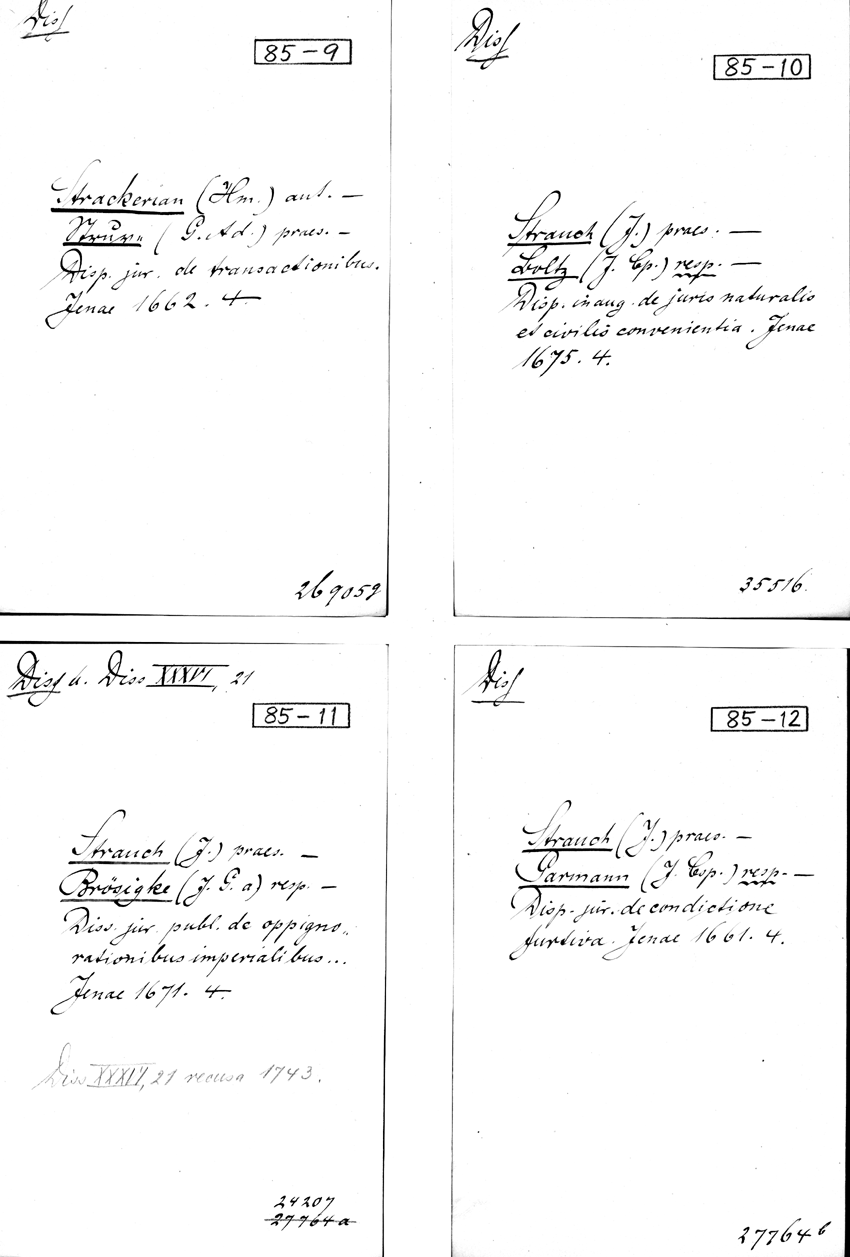 Diss
85-9
Strackerian (Hm.) aut. —
Struve (G. Ad.) praes. —
Disp. jur. de transactionibus.
Jenae 1662. 4
269059
Diss
85-10
Strauch (J.) praes. —
Boltz (J. Cp.) resp. —
Disp. inaug. de juris naturalis
et civilis convenientia. Jenae
1675. 4.
35516.
Diss u. Diss XXXVI, 21
85-11
Strauch (J.) praes. —
Brösigke (J. G. a) resp. —
Diss. jur. publ. de oppigno„
rationibus imperialibus...
Jenae 1671. 4.
Diss XXXIV, 21 recusa 1743.
24207
27764a
Diss
85-12
Strauch (J.) praes. —
Garmann (J. Csp.) resp. —
Disp. jur. de condictione
furtiva. Jenae 1661. 4.
27764b